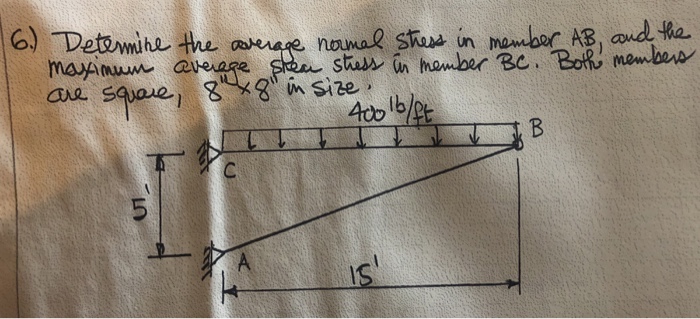 6.) Determine the average normal stress in member AB, and the
maximum average shear stress in member BC. Both members
are square, 8"x8" in size.
400 lb/ft
B
C
5'
A
15'